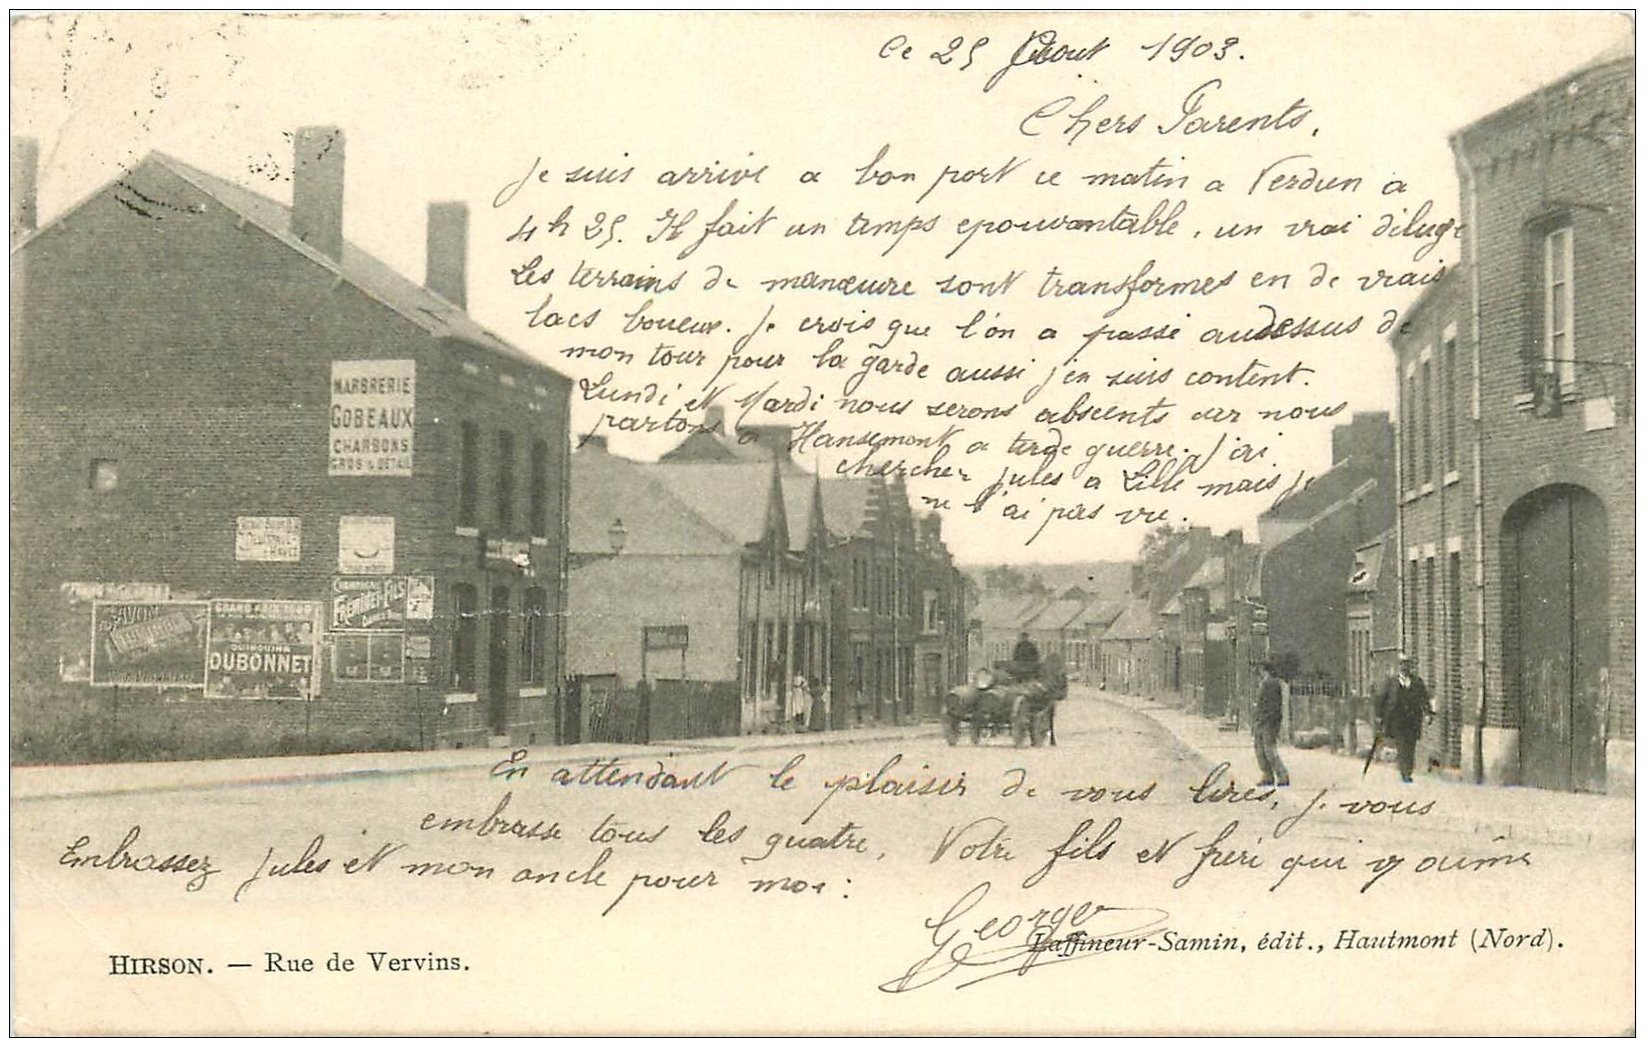 Ce 25 Aout 1903.
Chers Parents,
Je suis arrivé a bon port ce matin a Verdun a
4h 25. Il fait un temps epouvantable, un vrai déluge
Les terrains de manœuvre sont transformes en de vrais
lacs boueux. Je crois que l'on a passé audessus de
mon tour pour la garde aussi j'en suis content.
Lundi et Mardi nous serons absents car nous
partons a a guerre. J'ai
chercher Jules a Lille mais je
ne l'ai pas vu.
MARBRERIE
GOBEAUX
CHARBONS
GROS & DETAIL
CHAMPAGNE
FREMINET & FILS
SAVON
GRAND PRIX 1900
QUINQUINA
DUBONNET
En attendant le plaisir de vous lires, je vous
embrasse tous les quatre, Votre fils et frère qui v aime
Embrassez Jules et mon oncle pour moi.
George
Laffineur-Samin, édit., Hautmont (Nord).
HIRSON. — Rue de Vervins.